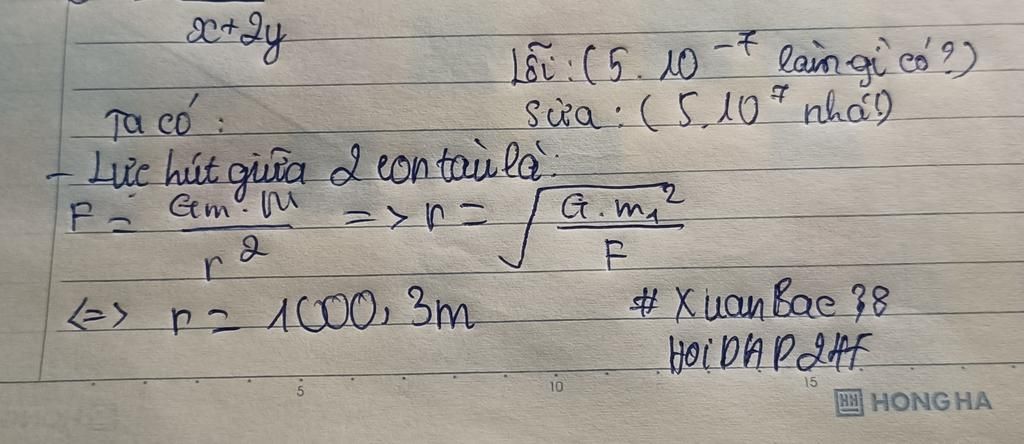 x+2y
Lỗi: (5.10⁻⁷ làm gì có?)
Ta có: Sửa: (5.10⁷ nhá!)
- Lực hút giữa 2 con tàu là:
F = Gm.M / r² => r = √(G.m₁² / F)
<=> r = 1000,3m # XuanBac38
HOiDAP247
5 10 15
HH HONG HA